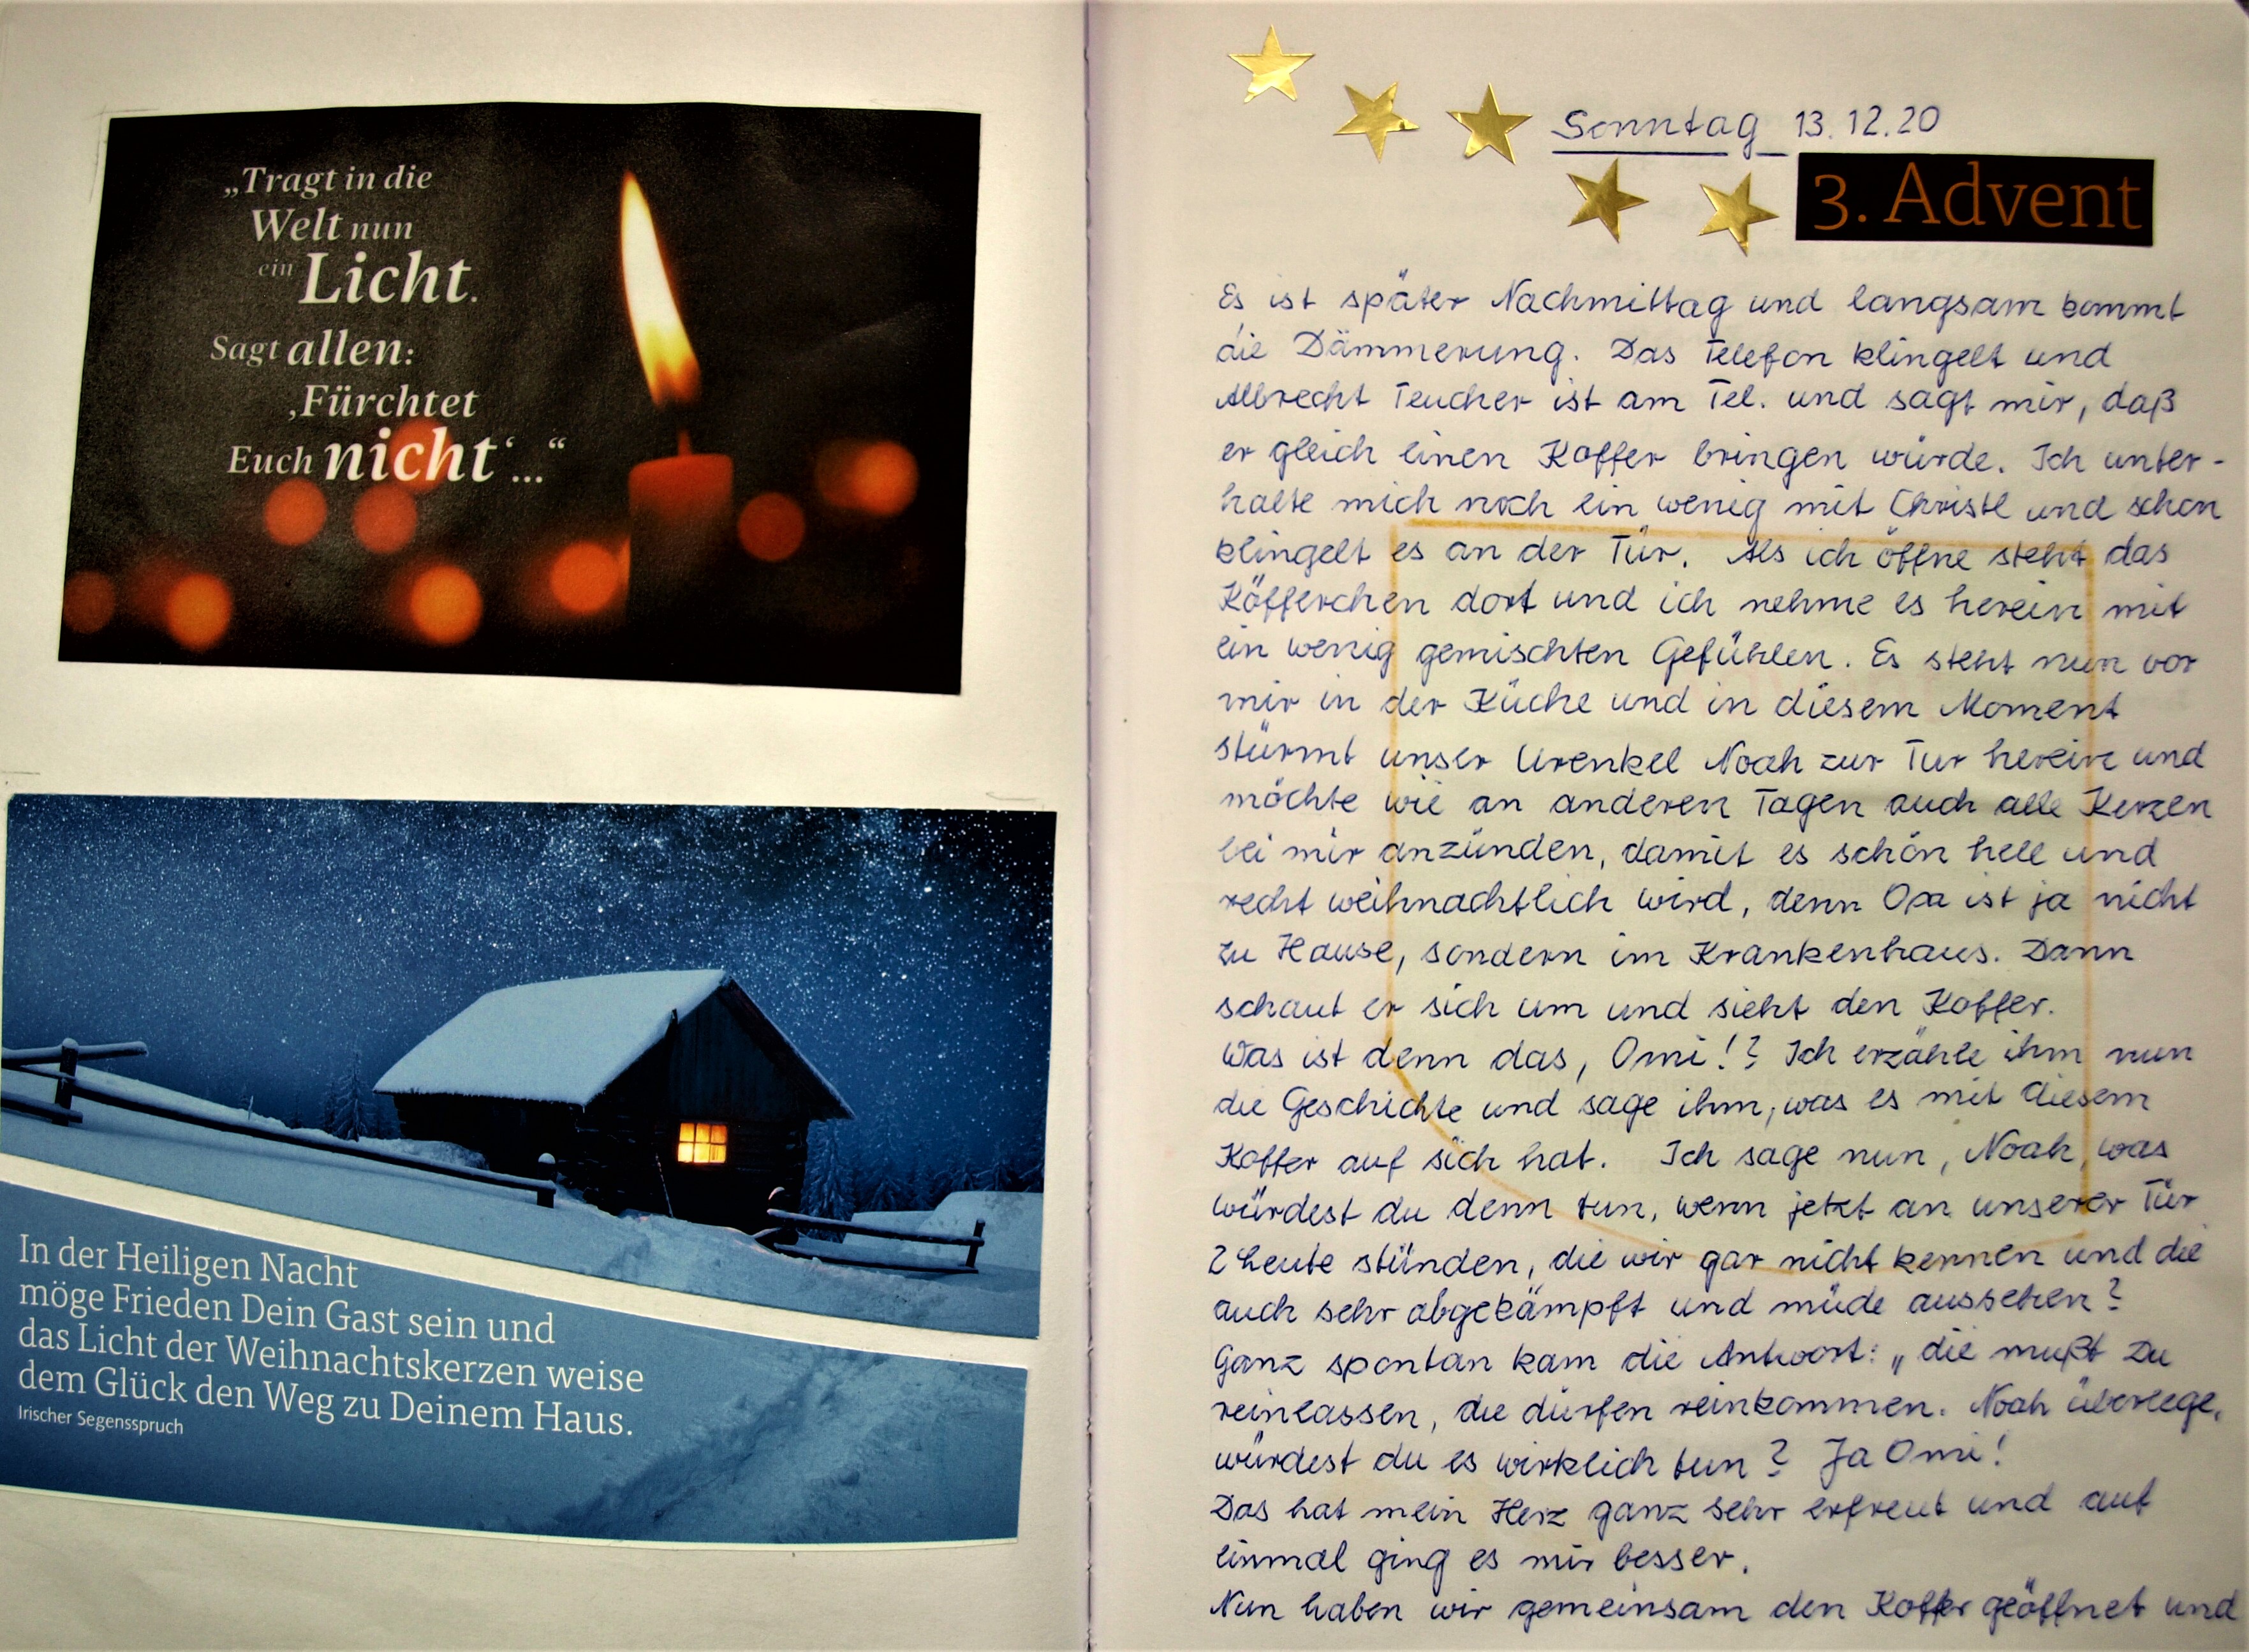 „Tragt in die
Welt nun
ein Licht.
Sagt allen:
‚Fürchtet
Euch nicht‘ ...“
In der Heiligen Nacht
möge Frieden Dein Gast sein und
das Licht der Weihnachtskerzen weise
dem Glück den Weg zu Deinem Haus.
Irischer Segensspruch
Sonntag 13.12.20
3. Advent
Es ist später Nachmittag und langsam kommt
die Dämmerung. Das Telefon klingelt und
Albrecht Teucher ist am Tel. und sagt mir, daß
er gleich einen Koffer bringen würde. Ich unter-
halte mich noch ein wenig mit Christl und schon
klingelt es an der Tür. Als ich öffne steht das
Köfferchen dort und ich nehme es herein mit
ein wenig gemischten Gefühlen. Es steht nun vor
mir in der Küche und in diesem Moment
stürmt unser Urenkel Noah zur Tür herein und
möchte wie an anderen Tagen auch alle Kerzen
bei mir anzünden, damit es schön hell und
recht weihnachtlich wird, denn Opa ist ja nicht
zu Hause, sondern im Krankenhaus. Dann
schaut er sich um und sieht den Koffer.
Was ist denn das, Omi!? Ich erzähle ihm nun
die Geschichte und sage ihm, was es mit diesem
Koffer auf sich hat. Ich sage nun, Noah, was
würdest du denn tun, wenn jetzt an unserer Tür
2 Leute stünden, die wir gar nicht kennen und die
auch sehr abgekämpft und müde aussehen?
Ganz spontan kam die Antwort: „die mußt Du
reinlassen, die dürfen reinkommen. Noah überlege,
würdest du es wirklich tun? Ja Omi!
Das hat mein Herz ganz sehr erfreut und auf
einmal ging es mir besser.
Nun haben wir gemeinsam den Koffer geöffnet und